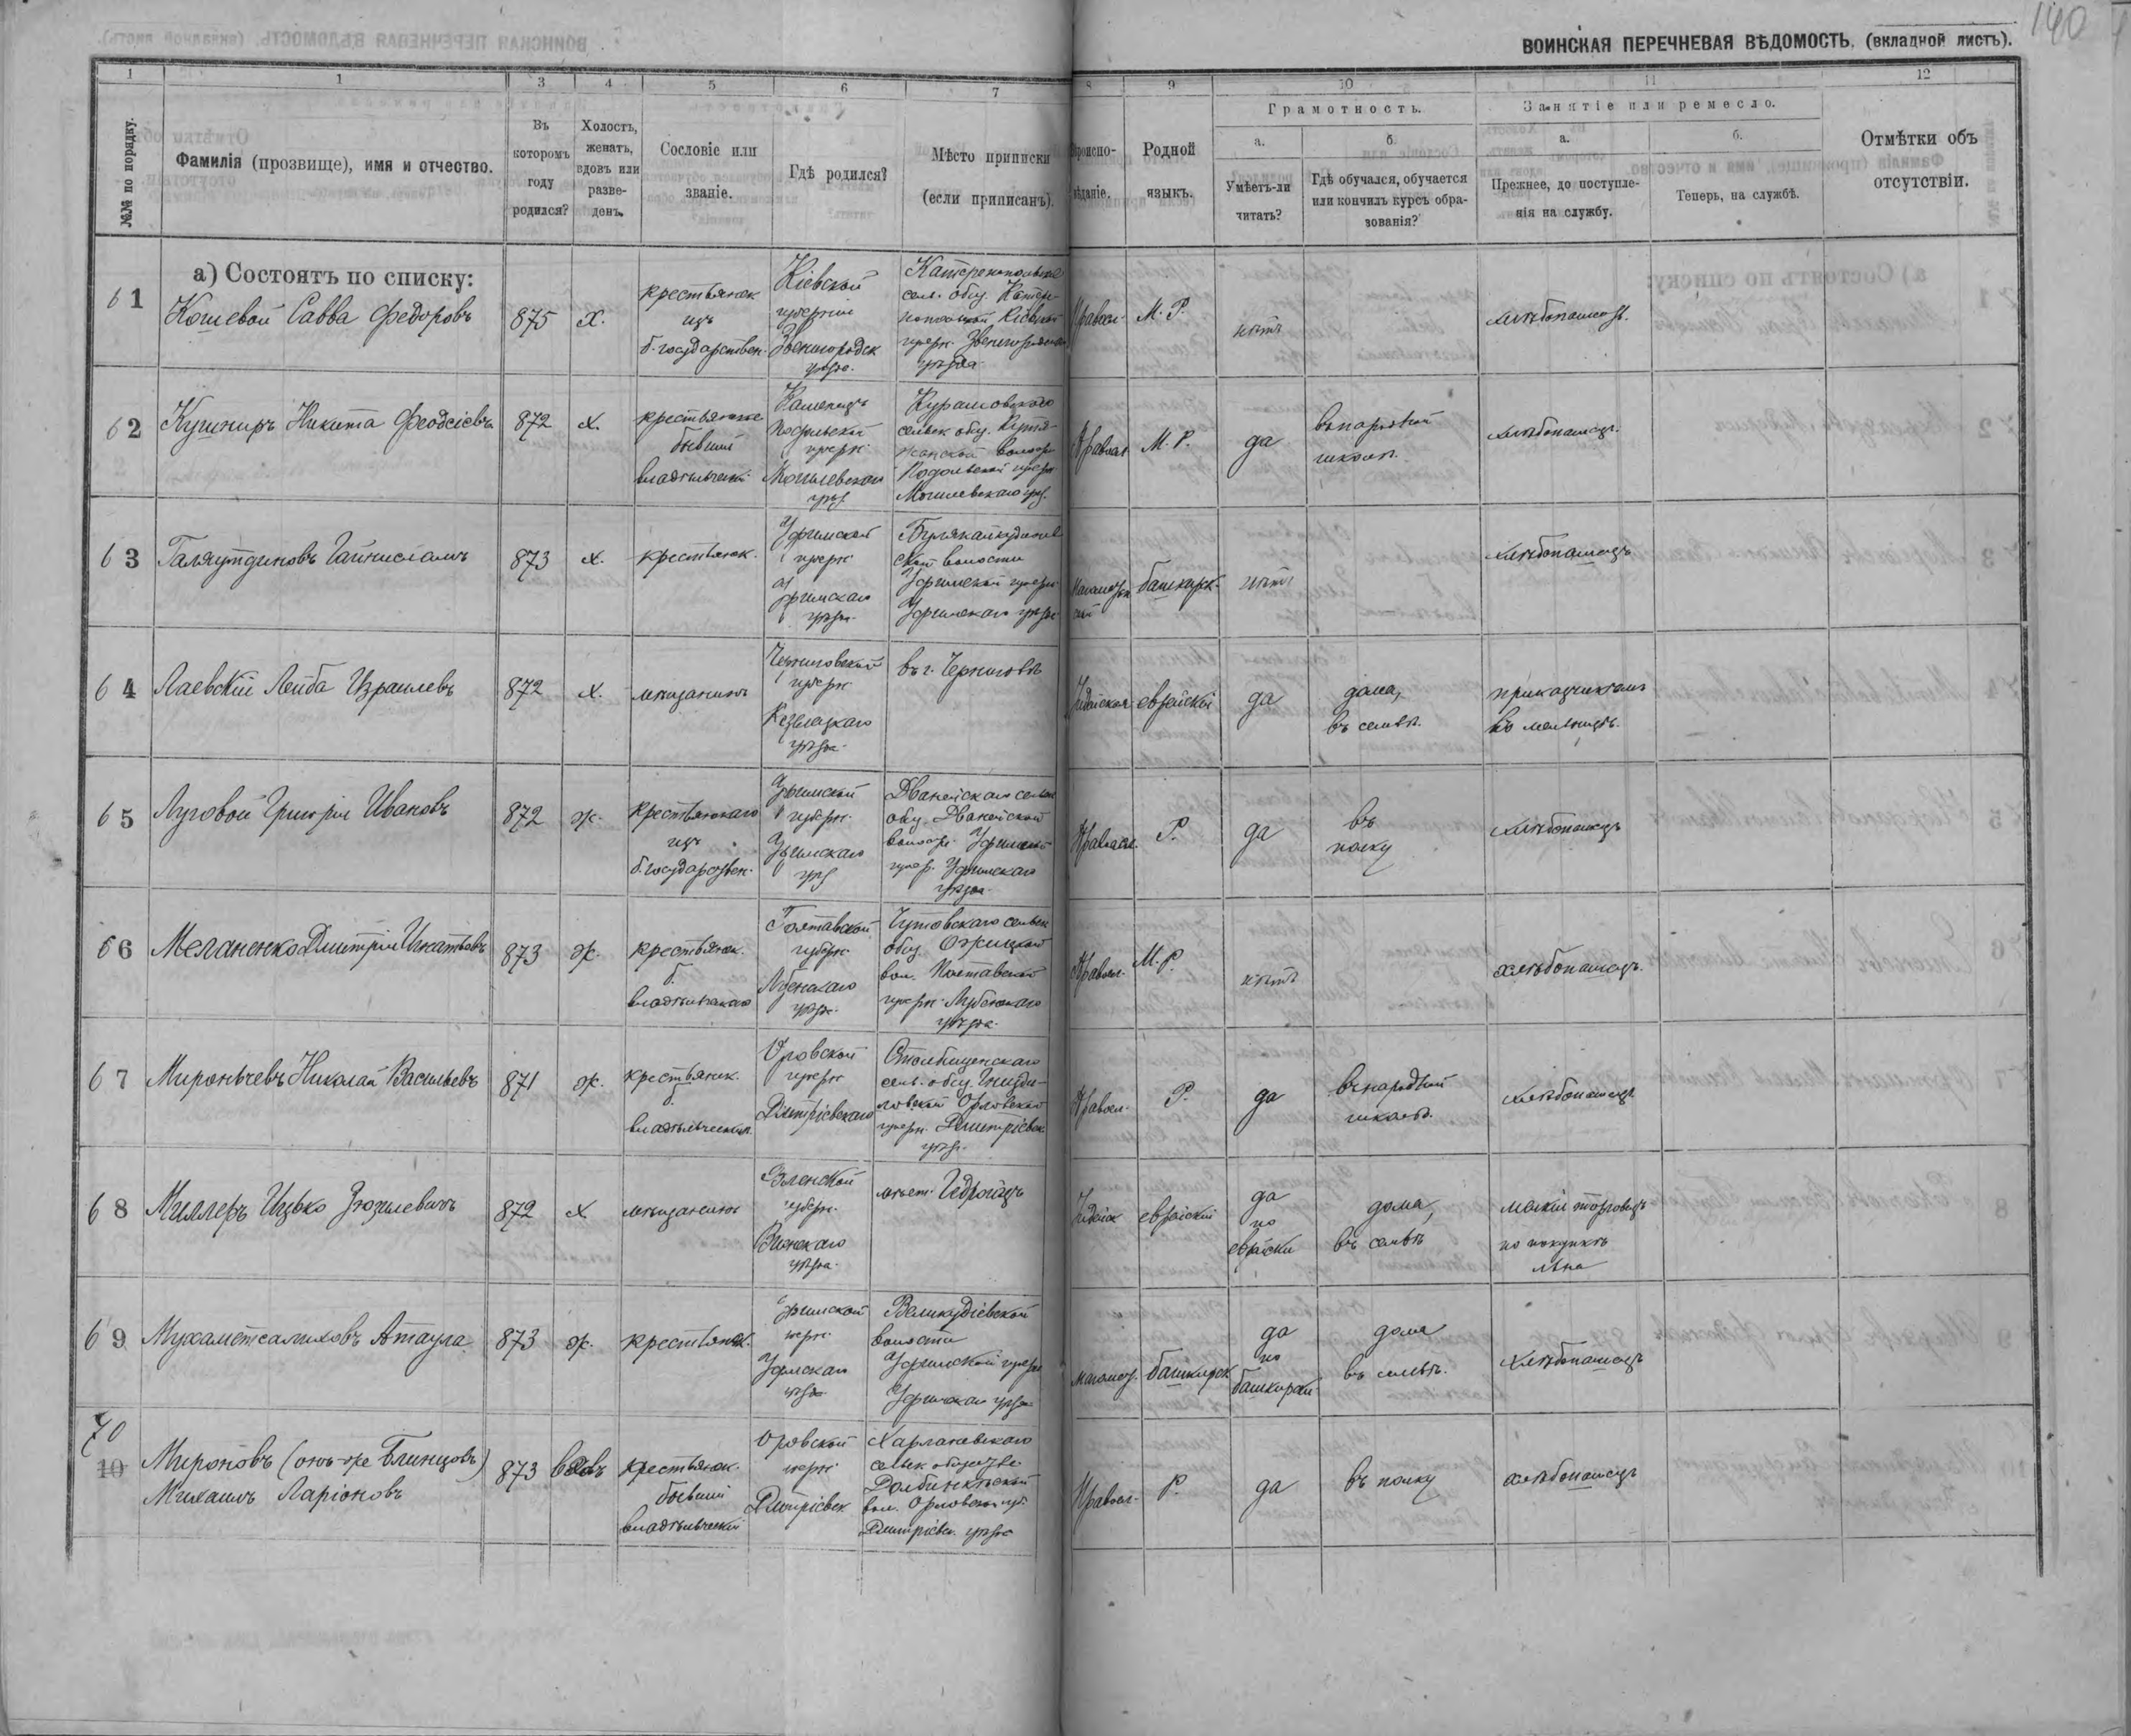 140
ВОИНСКАЯ ПЕРЕЧНЕВАЯ ВѢДОМОСТЬ. (вкладной листъ).
1 1 3 4 5 6 7 8 9 10 11 12
№№ по порядку.
Фамилія (прозвище), имя и отчество.
Въ которомъ году родился?
Холостъ, женатъ, вдовъ или разведенъ.
Сословіе или званіе.
Гдѣ родился?
Мѣсто приписки (если приписанъ).
Родной языкъ.
Грамотность.
а. Умѣетъ-ли читать?
б. Гдѣ обучался, обучается или кончилъ курсъ образованія?
Занятіе или ремесло.
а. Прежнее, до поступленія на службу.
б. Теперь, на службѣ.
Отмѣтки объ отсутствіи.
а) Состоятъ по списку:
61 Кошевой Савва Федоровъ 875 Х. крестьянск изъ б. государствен. Кіевской губерніи Звенигородск уѣзда. сел. общ. Кіевской губерн. уѣзда Правосл. М. Р. нѣтъ хлѣбопашецъ.
62 Кушниръ Никита Феодсіевъ 872 х. крестьянске бывший владѣльческ. Подольской губерн Могилевскаго уѣз. сельск общ. Подольской губерн Могилевскаго уѣз. Правосл М. Р. да въ народной школѣ. хлѣбопашецъ.
63 Галяутдиновъ 873 х. крестьянск. Уфимской губерн Уфимскаго уѣзда. волости Уфимской губерн. Уфимскаго уѣзда башкирск. нѣтъ хлѣбопашецъ
64 Лаевскій Лейба Израилевъ 872 х. мѣщанинъ Черниговской губерн Козелецкаго уѣзда. въ г. Черниговѣ Іудейская еврейскій да дома, въ семьѣ. приказчикомъ на мельницѣ.
65 Луговой Григорій Ивановъ 872 ж. крестьянскаго изъ б. государствен. Уфимской губерн. Уфимскаго уѣз Дванейскаго сельск общ. Дванейской волости Уфимской губер. Уфимскаго уѣзда Правосл. Р. да въ полку хлѣбопашецъ
66 Меланенко Дмитрій Игнатьевъ 873 ж. крестьянск. б. владѣльческаго Полтавской губерн. Лубенскаго уѣзда. Чутовскаго сельск общ. Оржицкой вол. Полтавской губерн. Лубенскаго уѣзда. Правосл. М. Р. нѣтъ хлѣбопашецъ.
67 Миронычевъ Николай Васильевъ 871 ж. крестьянск. б. владѣльческій. Орловской губерн Дмитріевскаго Столбищенскаго сел. общ. Орловской губерн. Дмитріевск. уѣз. Правосл. Р. да въ народной школѣ. хлѣбопашецъ
68 Миллеръ Ицько Зюзилевичъ 872 х мѣщанинъ Виленской губерн. Виленскаго уѣзда. мѣст. Гедройцъ Іудейск еврейскій да по еврейски дома, въ семьѣ мелкій торговецъ по покупкѣ льна
69 Мухаметсалиховъ Атаула 873 ж. крестьянск. Уфимской губерн. Уфимскаго уѣзда волости Уфимской губерн Уфимскаго уѣзда магомет. башкирск да по башкирски дома въ семьѣ. хлѣбопашецъ
70 10 Мироновъ (онъ-же Блинцовъ) Михаилъ Ларіоновъ 873 вдовъ крестьянск. бывшій владѣльческій Орловской губерн Дмитріевск Харлановскаго сельск общества Долбенкинской вол. Орловской губ. Дмитріевск. уѣзда Правосл. Р. да въ полку хлѣбопашецъ